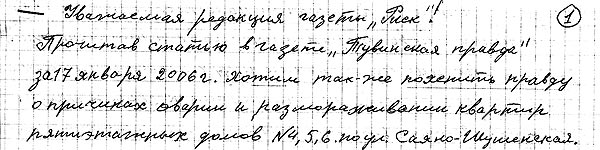 — Уважаемая редакция газеты „Риск"! 1
Прочитав статью в газете „Тувинская правда"
за 17 января 2006 г. хотим так-же пояснить правду
о причинах аварии и размораживании квартир
пятиэтажных домов №4,5,6. по ул. Саяно-Шушенская.